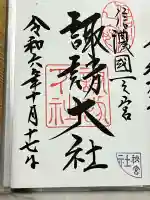 信濃國一之宮
諏訪大社
令和六年十月十七日